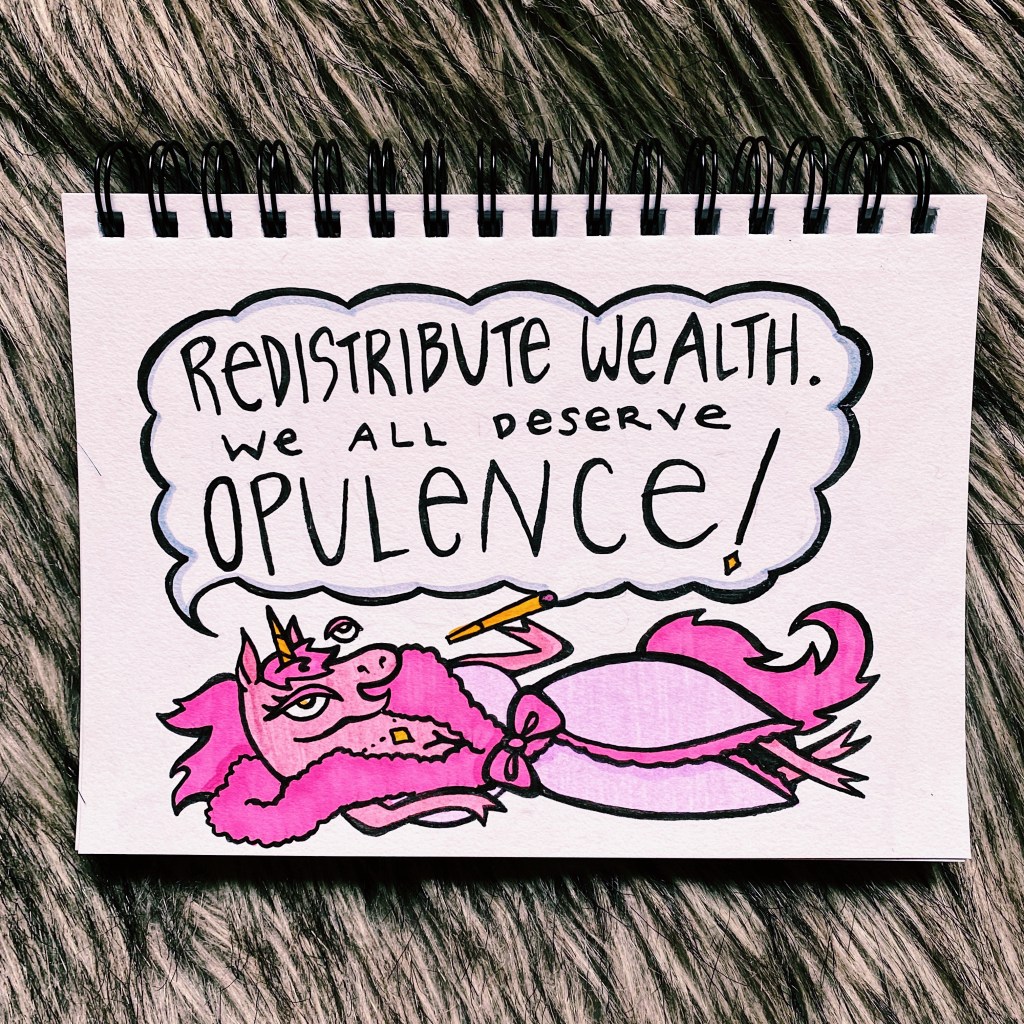 REDISTRIBUTE WEALTH.
WE ALL DESERVE
OPULENCE!